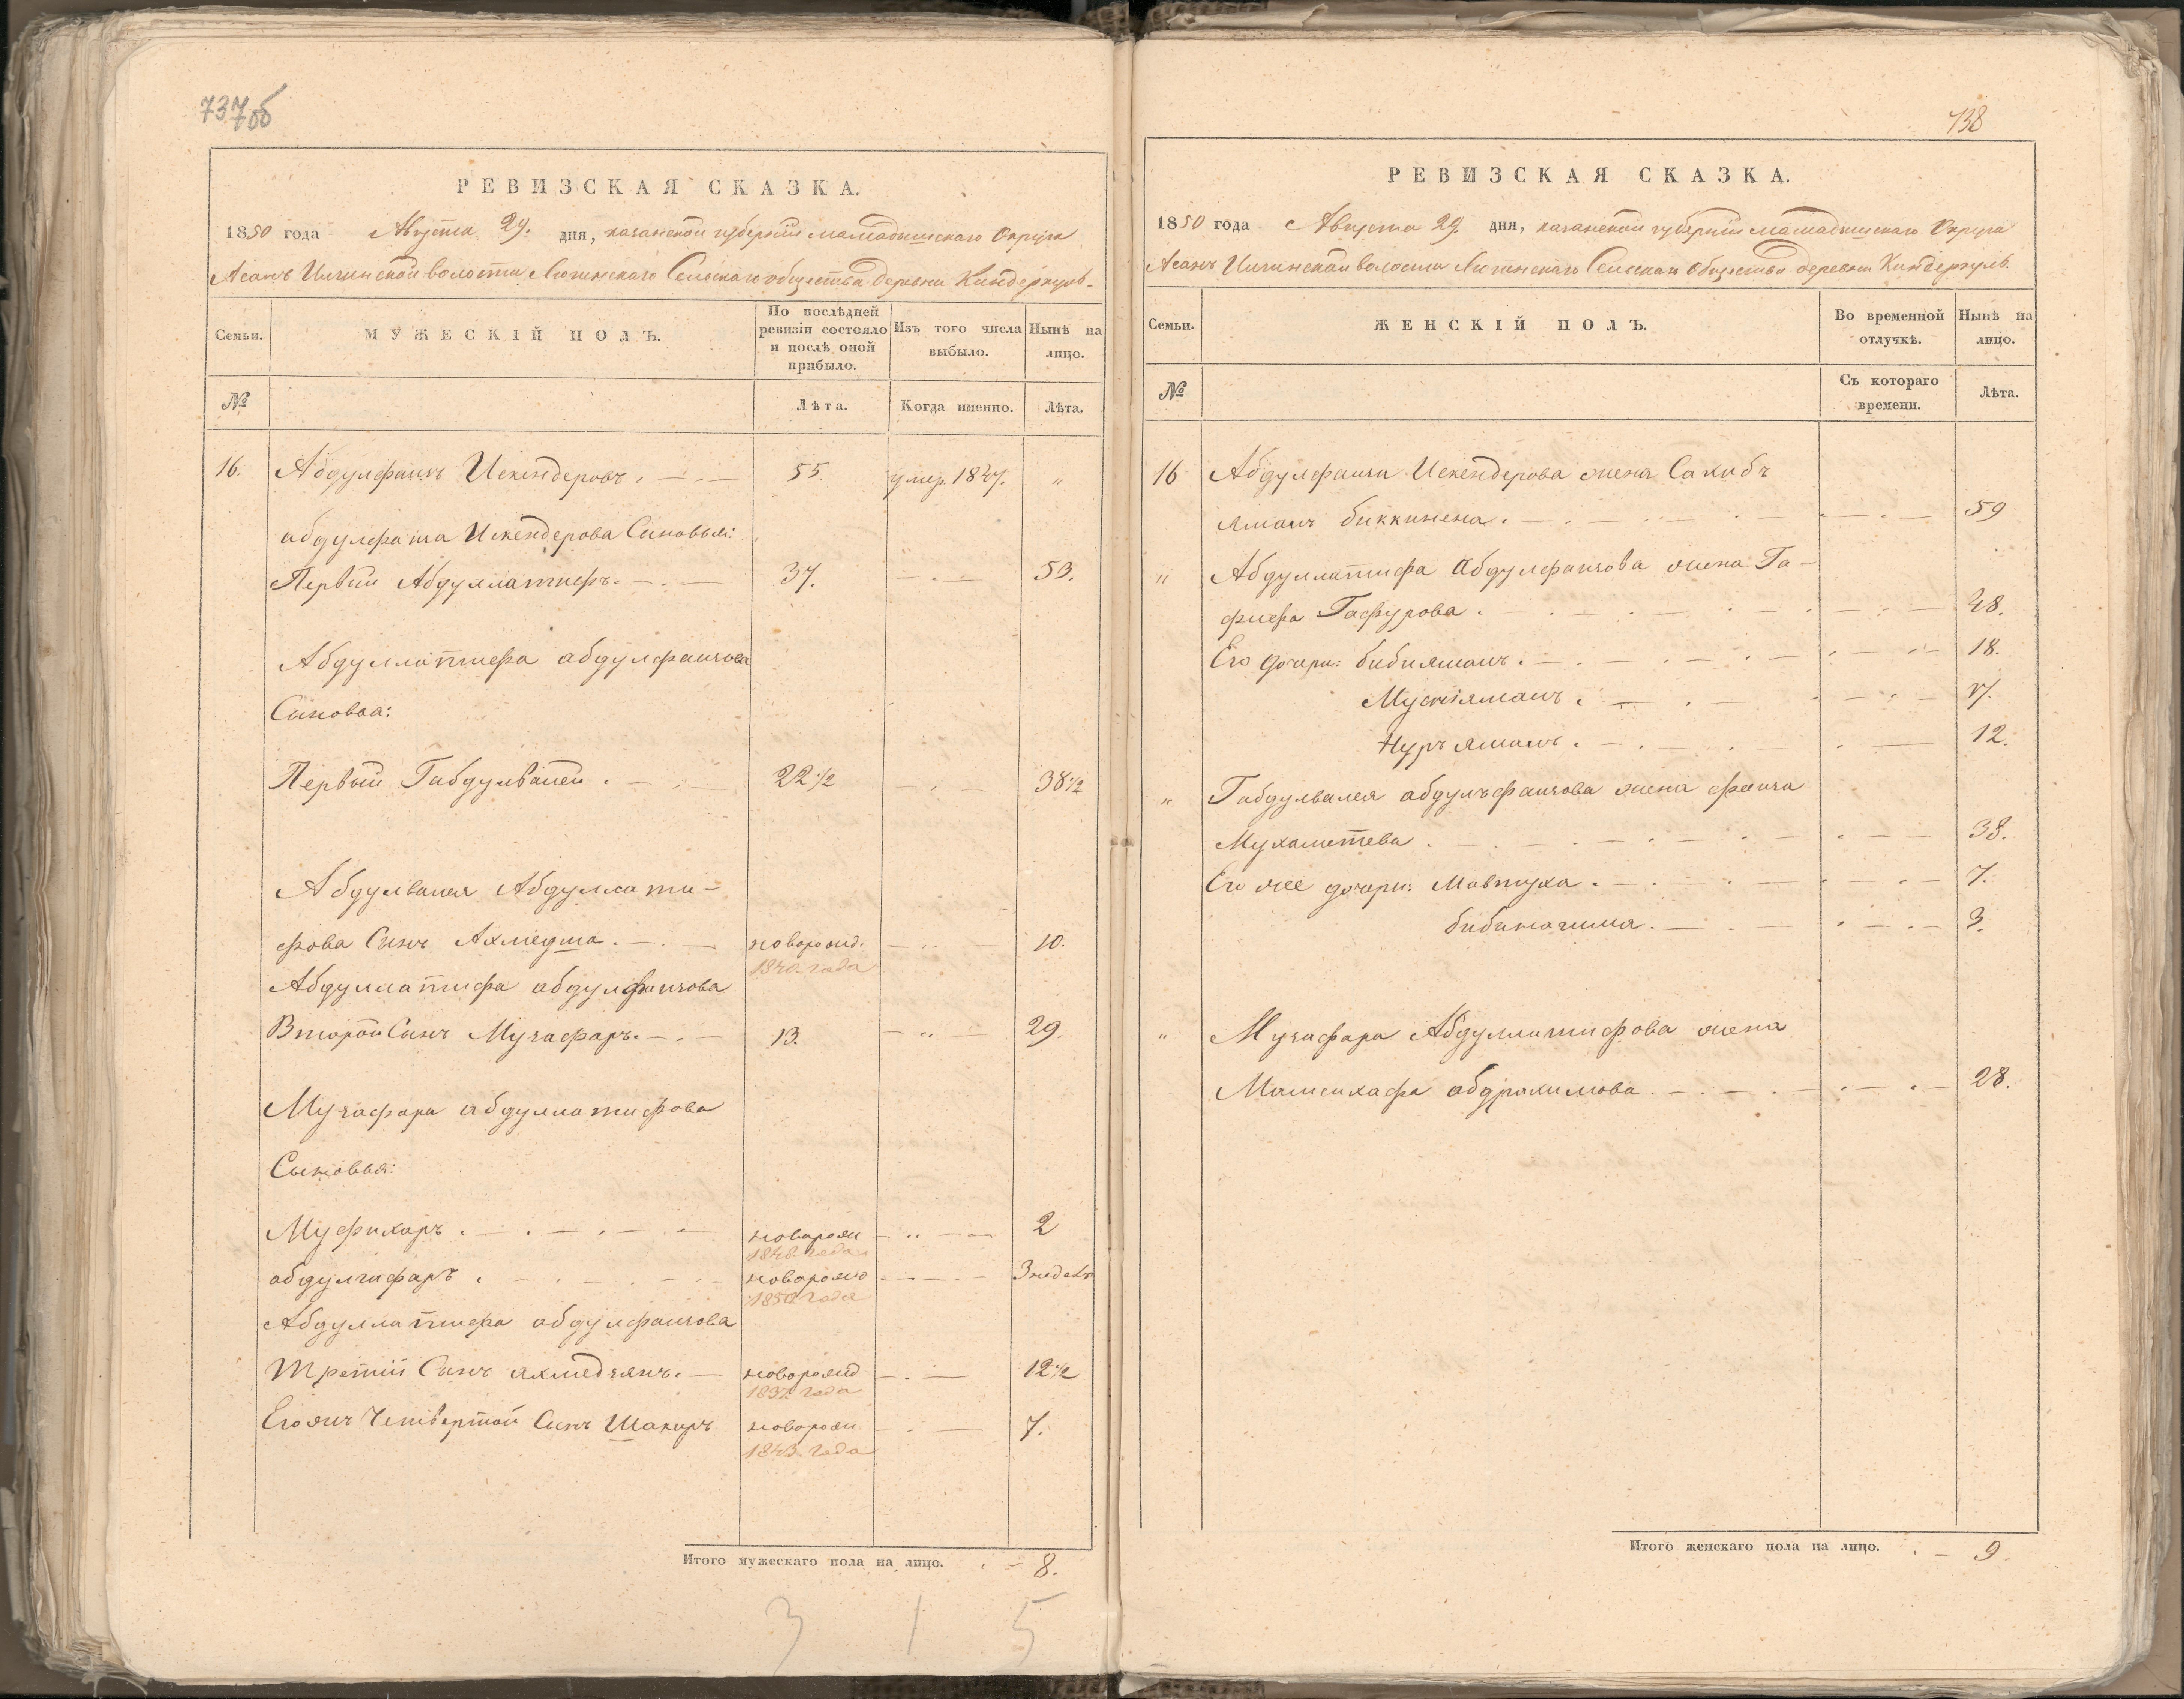 737об
РЕВИЗСКАЯ СКАЗКА.
1850 года Августа 29. дня, казанской губерніи мамадышскаго Округа
Асанъ Илчинской волости Сельскаго общества деревни Киндеркуль.
Семьи.
МУЖЕСКІЙ ПОЛЪ.
По послѣдней ревизіи состояло и послѣ оной прибыло.
Изъ того числа выбыло.
Нынѣ на лицо.
№
Лѣта.
Когда именно.
Лѣта.
16. Абдулфаизъ Искендеровъ. 55. умер. 1847. "
абдулфаиза Искендерова Сыновья:
Первый Абдуллатифъ. 37. 53.
Абдуллатифа абдулфаизова
Сыновья:
Первый Габдулвалей. 22 1/2 38 1/2
Абдулвалея Абдуллати-
фова Сынъ Ахмедша. новорожд. 10.
1840. года
Абдуллатифа абдулфаизова
Второй Сынъ Музафаръ. 13. 29.
Музафара абдуллатифова
Сыновья:
Муфихаръ. новорож 2
1848 года
абдулгафаръ. новорожд 3 недель
1850 года
Абдуллатифа абдулфаизова
Третій Сынъ ахмедзянъ. новорожд 12 1/2
1837. года
Егожъ Четвертой Сынъ Шакиръ новорож 7.
1843. года
Итого мужескаго пола на лицо. 8.
3 1 5
738
РЕВИЗСКАЯ СКАЗКА.
1850 года Августа 29. дня, казанской губерніи мамадышскаго Округа
Асанъ Илчинской волости Сельскаго Общества деревни Киндеркуль.
Семьи.
ЖЕНСКІЙ ПОЛЪ.
Во временной отлучкѣ.
Нынѣ на лицо.
№
Съ котораго времени.
Лѣта.
16 Абдулфаиза Искендерова жена Сахибъ
ямалъ биккинена. 59
" Абдуллатифа абдулфаизова жена Га-
фифа Гафурова. 48.
Его дочери: бибиямалъ. 18.
ямалъ.
Нуръ ямалъ. 12.
" Габдулвалея абдулъфаизова жена фаиза
Мухаметева. 38.
Его же дочери: Мавтуха. 7.
3.
" Музафара Абдуллатифова жена
абдрахимова. 28.
Итого женскаго пола на лицо. 9.